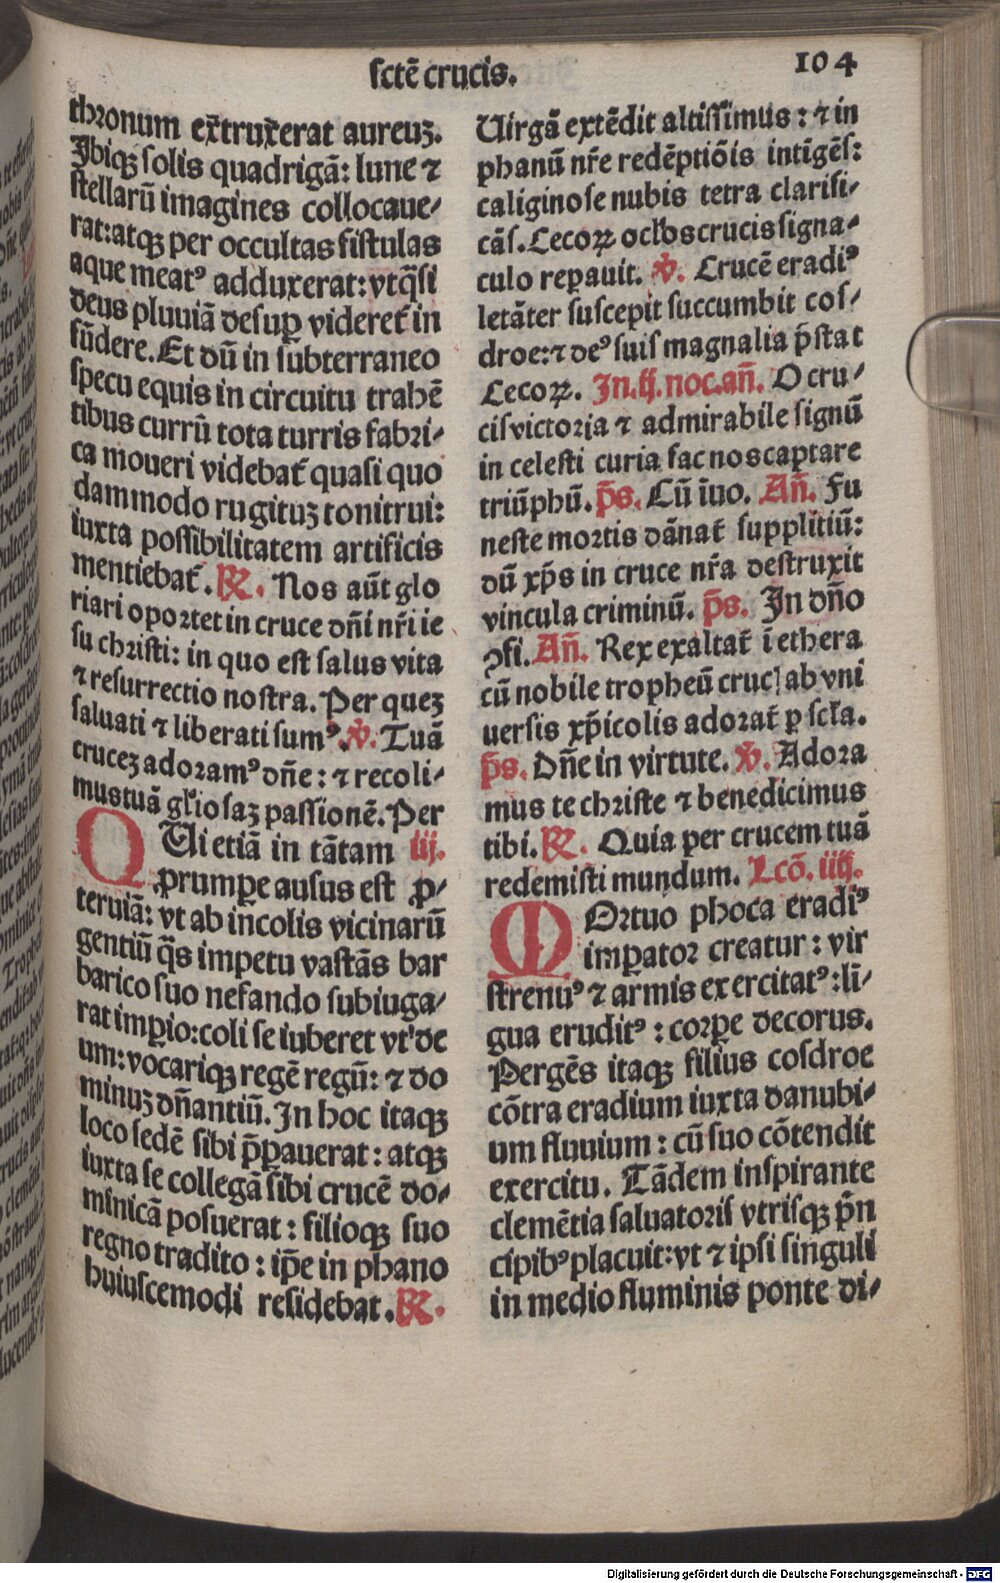 sctē crucis.
104
thronum ex̄truxerat aureuꝫ.
Ibiqꝫ solis quadrigā: lune ⁊
stellarū imagines collocaue⸗
rat:atqꝫ per occultas fistulas
aque meatꝰ adduxerat:vtq̄si
deus pluuiā desuꝑ videret̄ in
fūdere. Et dū in subterraneo
specu equis in circuitu trahē
tibus currū tota turris fabri⸗
ca moueri videbat̄ quasi quo
dammodo rugituꝫ tonitrui:
iuxta possibilitatem artificis
mentiebat̄. ℟. Nos aūt glo
riari oportet in cruce dn̄i nr̄i ie
su christi: in quo est salus vita
⁊ resurrectio nostra. Per queꝫ
saluati ⁊ liberati sumꝰ. ℣. Tuā
cruceꝫ adoramꝰ dn̄e: ⁊ recoli⸗
mus tuā gl̄iosaꝫ passionē. Per
QUi etiā in tātam iij.
prumꝑe ausus est ꝓ⸗
teruiā: vt ab incolis vicinarū
gentiū q̄s impetu vastās bar
barico suo nefando subiuga⸗
rat imꝑio: coli se iuberet vt de
um: vocariqꝫ regē regū: ⁊ do
minuꝫ dn̄antiū. In hoc itaqꝫ
loco sedē sibi p̄ꝑauerat: atqꝫ
iuxta se collegā sibi crucē do⸗
minicā posuerat: filioqꝫ suo
regno tradito: ip̄e in phano
huiuscemodi residebat. ℟.
Uirgā extēdit altissimus: ⁊ in
phanū nr̄e redēptiōis intigēs:
caliginose nubis tetra clarifi⸗
cās. Cecoꝝ ocl̄os crucis signa⸗
culo reꝑauit. ℣. Crucē eradiꝰ
letāter suscepit succumbit cos⸗
droe: ⁊ deꝰ suis magnalia p̄stat
Cecoꝝ. In.ij.noc.an̄. O cru⸗
cis victoria ⁊ admirabile signū
in celesti curia fac nos captare
triūphū. p̄s. Cū īuo. An̄. Fu
neste mortis dānat̄ supplitiū:
dū xp̄s in cruce nr̄a destruxit
vincula criminū. p̄s. In dn̄o
ꝯfi. An̄. Rex exaltat̄ ī ethera
cū nobile tropheū crucꝭ ab vni
uersis xp̄icolis adorat̄ ꝑ scl̄a.
p̄s. Dn̄e in virtute. ℣. Adora
mus te christe ⁊ benedicimus
tibi. ℟. Quia per crucem tuā
redemisti mundum. Lcō. iiij.
MOrtuo phoca eradiꝰ
imꝑator creatur: vir
strenuꝰ ⁊ armis exercitatꝰ: lī⸗
gua eruditꝰ: corꝑe decorus.
Pergēs itaqꝫ filius cosdroe
cōtra eradium iuxta danubi⸗
um fluuium: cū suo cōtendit
exercitu. Tādem inspirante
clemētia saluatoris vtrisqꝫ pn̄
cipibꝰ placuit: vt ⁊ ipsi singuli
in medio fluminis ponte di⸗
Digitalisierung gefördert durch die Deutsche Forschungsgemeinschaft - DFG